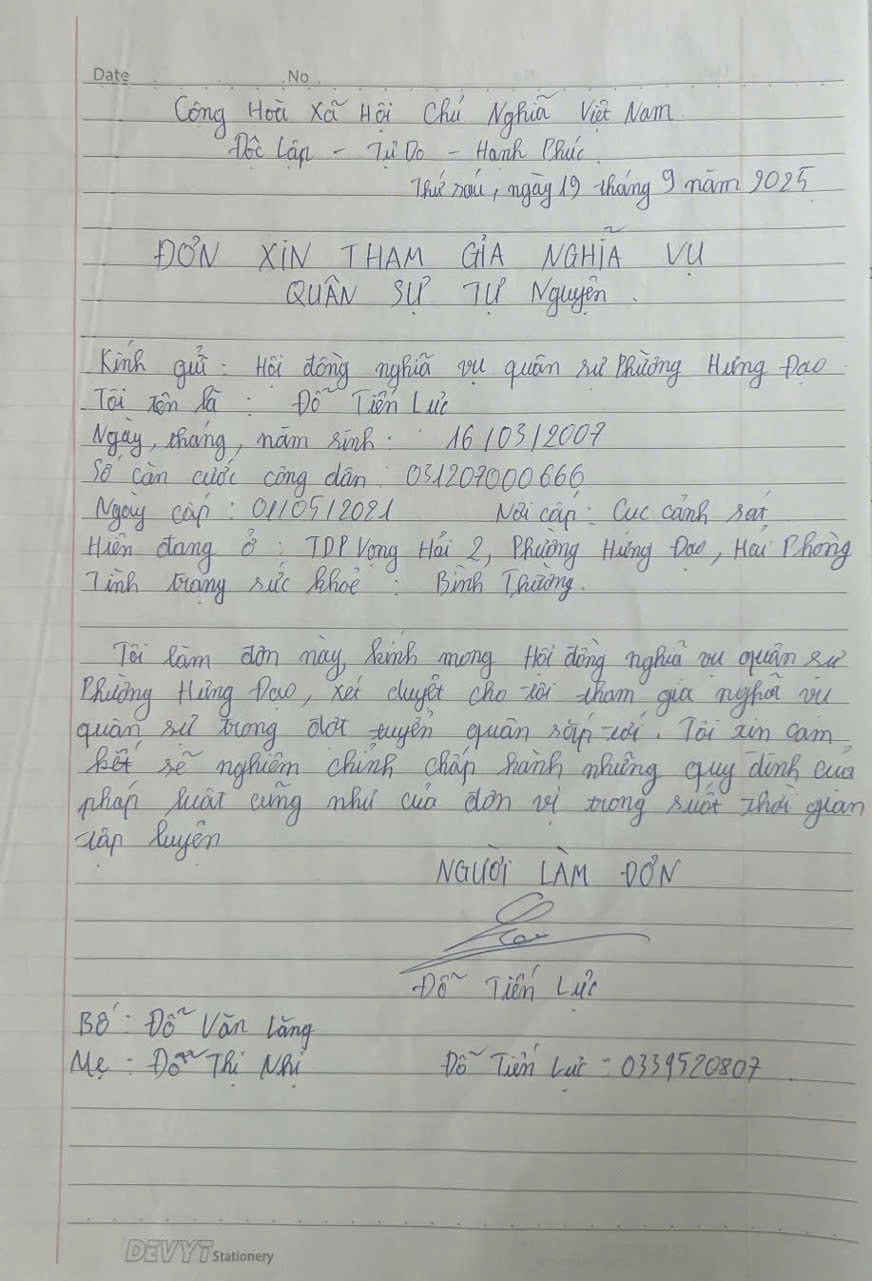 Date No
Cộng Hoà Xã Hội Chủ Nghĩa Việt Nam
Độc Lập - Tự Do - Hạnh Phúc
Thứ sáu, ngày 19 tháng 9 năm 2025
ĐƠN XIN THAM GIA NGHĨA VỤ
QUÂN SỰ TỰ Nguyện.
Kính gửi: Hội đồng nghĩa vụ quân sự Phường Hưng Đạo
Tôi tên là : Đỗ Tiến Lực
Ngày, tháng, năm sinh: 16/03/2007
Số căn cước công dân: 031207000666
Ngày cấp: 01/05/2021 Nơi cấp: Cục cảnh sát
Hiện đang ở : TDP Vọng Hải 2, Phường Hưng Đạo, Hải Phòng
Tình trạng sức khoẻ : Bình Thường.
Tôi làm đơn này, kính mong Hội đồng nghĩa vụ quân sự
Phường Hưng Đạo, xét duyệt cho tôi tham gia nghĩa vụ
quân sự trong đợt tuyển quân sắp tới. Tôi xin cam
kết sẽ nghiêm chỉnh chấp hành những quy định của
pháp luật cũng như của đơn vị trong suốt thời gian
tập luyện
NGƯỜI LÀM ĐƠN
Đỗ Tiến Lực
Bố: Đỗ Văn Lăng
Mẹ: Đỗ Thị Nhị Đỗ Tiến Lực: 0339520807
DEVYT Stationery